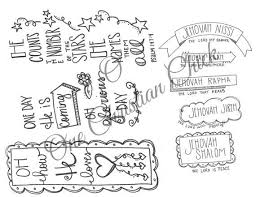 HE
COUNTS
THE
NUMBER
OF THE
STARS
HE
NAMES
THEM
all
PSALM 147:4
ONE DAY
HE IS
Coming
OH
how
He
loves
JEHOVAH NISSI
THE LORD MY BANNER
JEHOVAH RAPHA
THE LORD THAT HEALS
JEHOVAH JIREH
JEHOVAH
SHALOM
THE LORD IS PEACE
One Christian Chick